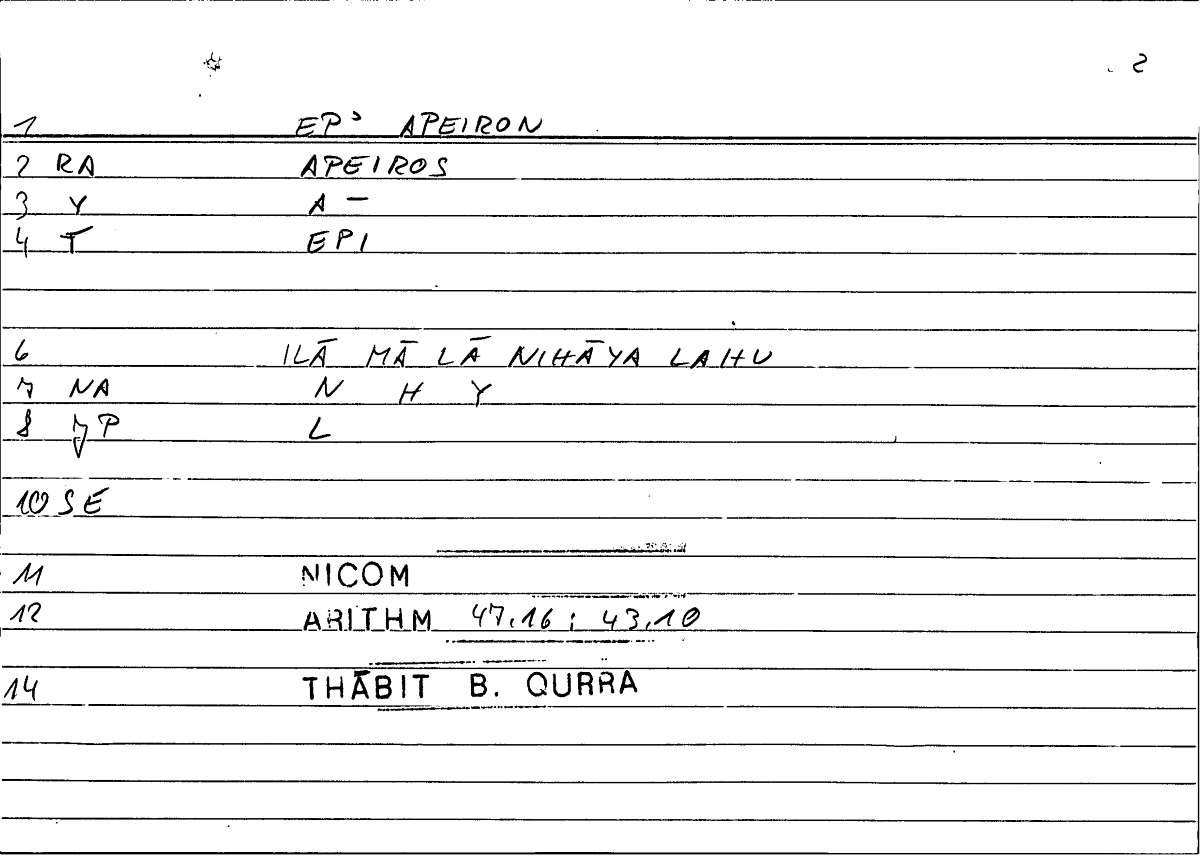 2
1 EP' APEIRON
2 RA APEIROS
3 Y A –
4 T EPI
6 ILĀ MĀ LĀ NIHĀYA LAHU
7 NA N H Y
8 7P L
10 SE
11 NICOM
12 ARITHM 47,16 ; 43,10
14 THĀBIT B. QURRA